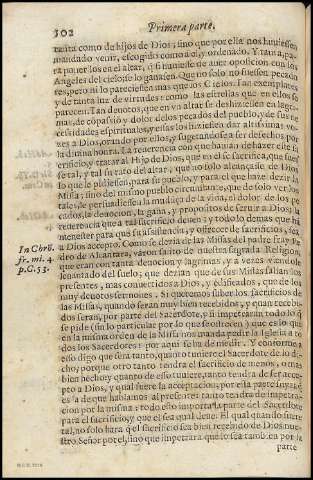 302 Primera parte.
tanta como de hijos de Dios; sino que por ellas nos huviessen
mandado venir, escogido como a el, y ordenado. Y tan a pa-
ra ponerlos en el altar, q̃ huviesse de aver oposicion con los
Angeles del cielo se lo Que no solo no fuessen pecado
res, pero ni lo pareciessen mas que los Cielos. Tan exemplares
y de tanta luz de virtudes: como las estrellas que en ellos se
parecen. Tan devotos, que en un altar se deshiziessen en lagri-
mas, de copassió y dolor de los pecados del pueblo, y de sus ne
cessidades espirituales, y essas los hiziessen dar altissimas vo-
zes a Dios, orando por ellos, y sugetandose a ser deshechos por
la divina honra. La reverencia con que havian de hazer este sa-
crificio, y tratar al Hijo de Dios, que en el se sacrifica, que fues
se tal, y tal su trato del altar, que no solo alcançasse de Dios
lo que le pidiessen, para su pueblo, y para el que haze dezir la
Missa; sino del mismo pueblo circunstante, que de solo ver los
tales, le persuadiesse la mudáça de la vida, el dolor de los pe
cados, la devocion, la gana, y propositos de servir a Dios, la
reverencia que a tal sacrificio deven: y todo lo demas que ha
menester para que su assistencia, y offrecer de sacrificios, sea
a Dios accepto. Como se dezia de las Missas del padre fray Pe
dro de Alcantara, varon santo de nuestra sagrada Religion,
que eran con tanta devocion y lagrimas, y a vezes viendole
levantado del suelo; que dezian que de sus Missas salian los
presentes, mas convertidos a Dios, y edificados, que de los
muy devotos sermones. Si queremos saber los sacrificios de
las Missas, quando seran muy bien recebidos, y quan recebi
dos seran, por parte del Sacerdote, y si impetrarán todo lo q̃
se pide (si lo particular por lo que se ofrecen) que es lo que
en la misma orden de la Missa nos manda pedir la Iglesia a to
dos los Sacerdotes: por aqui se ha de medir. Y conforme a
esto digo que sera tanto, quanto tuviere el Sacerdote de lo di-
cho; porque otro tanto tendra el sacrificio de menos, o mas
bien hecho; y quanto de esso tuviere, tanto tendra de ser acce
pto a Dios, y qual fuere la acceptacion, por essa parte suya, es
a de que hablamos al presente: tanto tendra de impetra-
cion por la misma: todo esso importa la parte del Sacerdote
para el sacrificio, y que el sea qual deve. Que quando fuere
tal, no solo hará q̃ el sacrificio sea bien recebido de Dios nue-
stro Señor por el, sino que impetrará que lo sea tambien por la
parte
In Chrō.
fr. mi. 4.
p. C. 53.